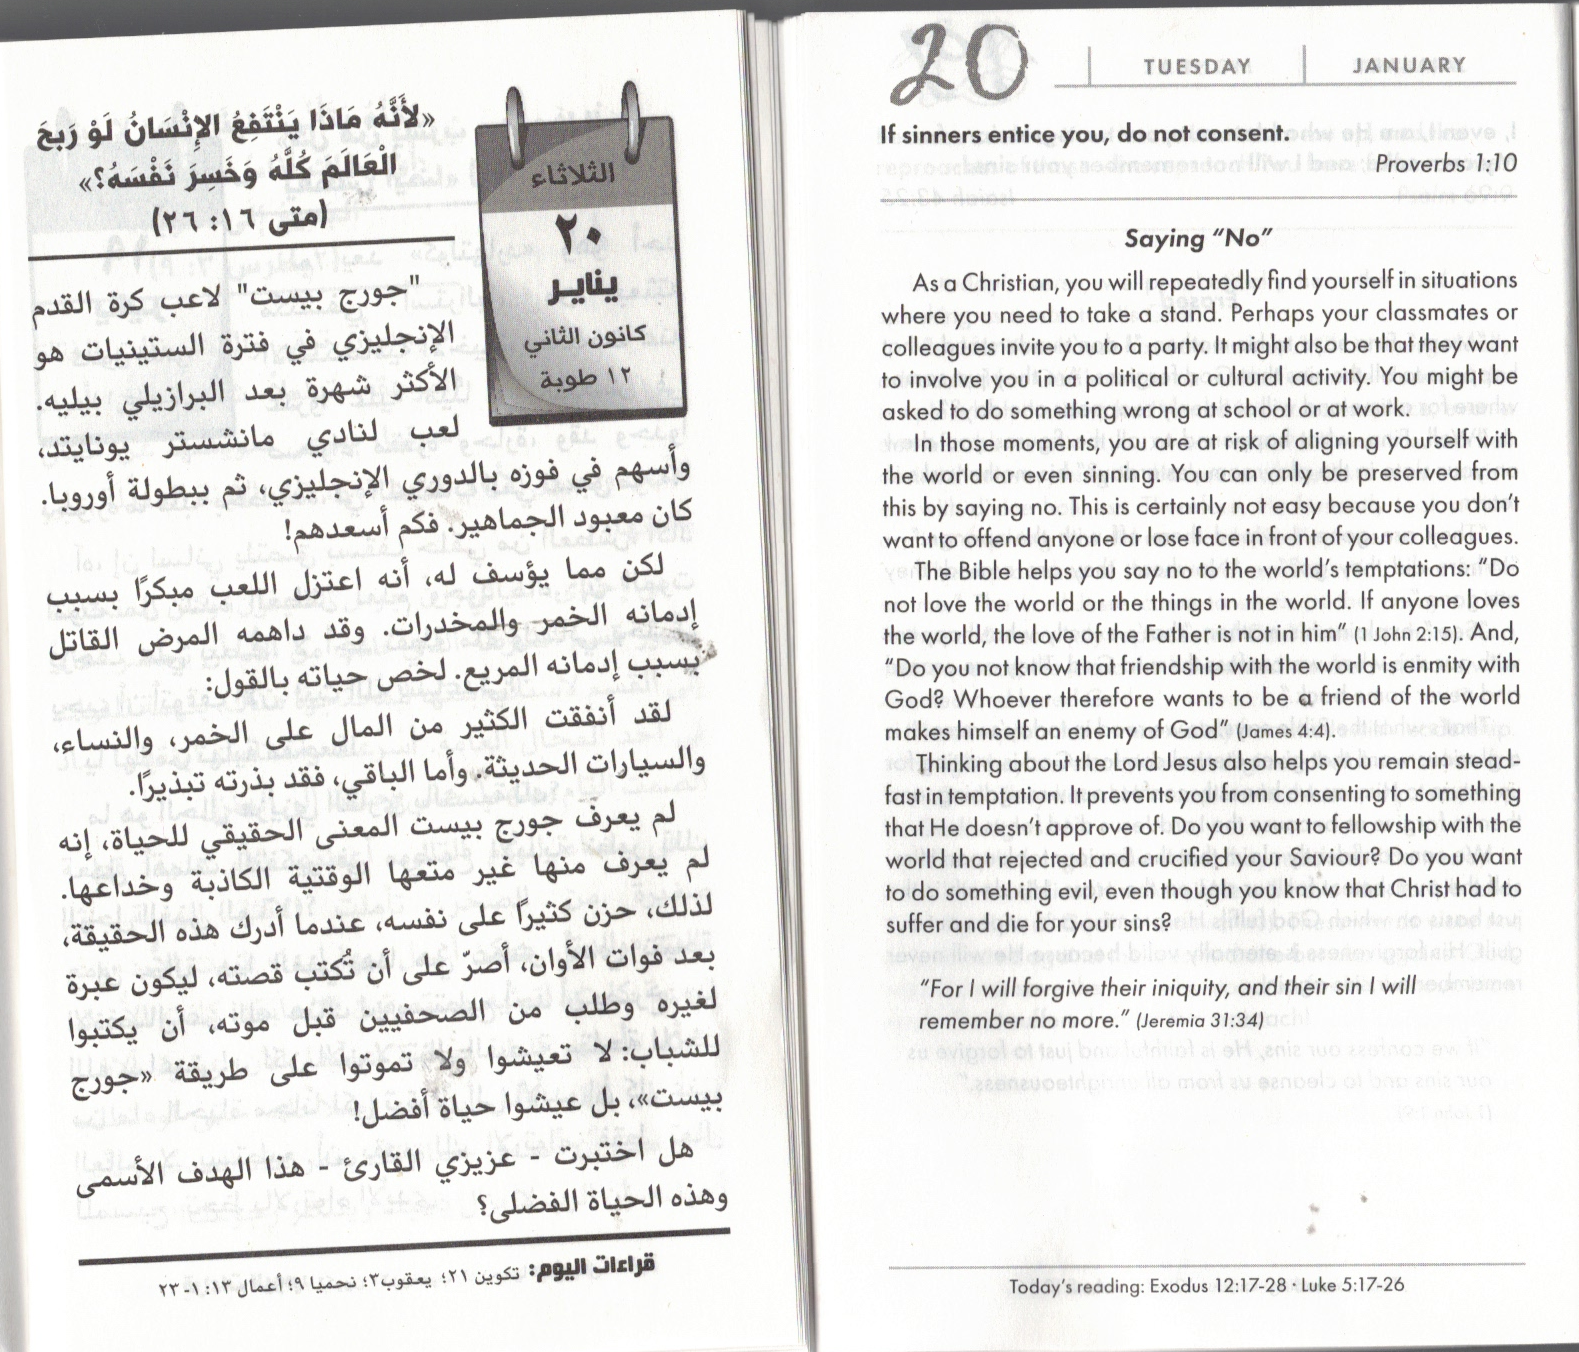 «لأَنَّهُ مَاذَا يَنْتَفِعُ الإِنْسَانُ لَوْ رَبِحَ
الْعَالَمَ كُلَّهُ وَخَسِرَ نَفْسَهُ؟»
(متى ١٦: ٢٦)
الثلاثاء
٢٠
يناير
كانون الثاني
١٢ طوبة
"جورج بيست" لاعب كرة القدم
الإنجليزي في فترة الستينيات هو
الأكثر شهرة بعد البرازيلي بيليه.
لعب لنادي مانشستر يونايتد،
وأسهم في فوزه بالدوري الإنجليزي، ثم ببطولة أوروبا.
كان معبود الجماهير. فكم أسعدهم!
لكن مما يؤسف له، أنه اعتزل اللعب مبكرًا بسبب
إدمانه الخمر والمخدرات. وقد داهمه المرض القاتل
بسبب إدمانه المريع. لخص حياته بالقول:
لقد أنفقت الكثير من المال على الخمر، والنساء،
والسيارات الحديثة. وأما الباقي، فقد بذرته تبذيرًا.
لم يعرف جورج بيست المعنى الحقيقي للحياة، إنه
لم يعرف منها غير متعها الوقتية الكاذبة وخداعها.
لذلك، حزن كثيرًا على نفسه، عندما أدرك هذه الحقيقة،
بعد فوات الأوان، أصرّ على أن تُكتب قصته، ليكون عبرة
لغيره وطلب من الصحفيين قبل موته، أن يكتبوا
للشباب: لا تعيشوا ولا تموتوا على طريقة «جورج
بيست»، بل عيشوا حياة أفضل!
هل اختبرت - عزيزي القارئ - هذا الهدف الأسمى
وهذه الحياة الفضلى؟
قراءات اليوم: تكوين ٢١؛ يعقوب٣؛ نحميا ٩؛ أعمال ١٣: ١-٢٣
20
TUESDAY
JANUARY
If sinners entice you, do not consent.
Proverbs 1:10
Saying “No”
As a Christian, you will repeatedly find yourself in situations
where you need to take a stand. Perhaps your classmates or
colleagues invite you to a party. It might also be that they want
to involve you in a political or cultural activity. You might be
asked to do something wrong at school or at work.
In those moments, you are at risk of aligning yourself with
the world or even sinning. You can only be preserved from
this by saying no. This is certainly not easy because you don’t
want to offend anyone or lose face in front of your colleagues.
The Bible helps you say no to the world’s temptations: “Do
not love the world or the things in the world. If anyone loves
the world, the love of the Father is not in him” (1 John 2:15). And,
“Do you not know that friendship with the world is enmity with
God? Whoever therefore wants to be a friend of the world
makes himself an enemy of God” (James 4:4).
Thinking about the Lord Jesus also helps you remain stead-
fast in temptation. It prevents you from consenting to something
that He doesn’t approve of. Do you want to fellowship with the
world that rejected and crucified your Saviour? Do you want
to do something evil, even though you know that Christ had to
suffer and die for your sins?
“For I will forgive their iniquity, and their sin I will
remember no more.” (Jeremia 31:34)
Today’s reading: Exodus 12:17-28 · Luke 5:17-26